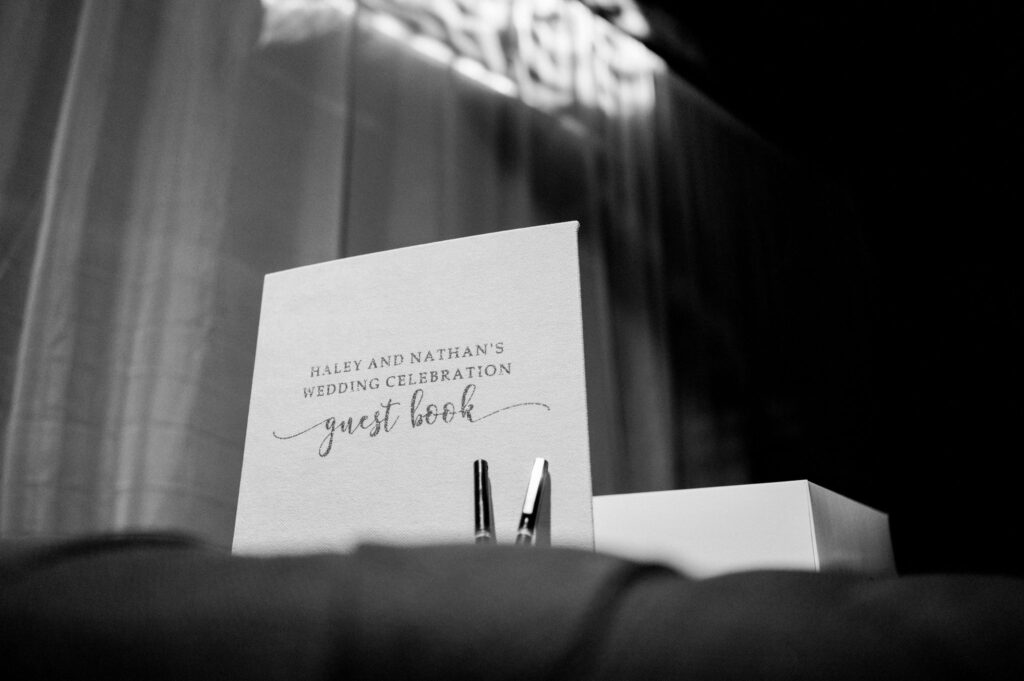 HALEY AND NATHAN'S
WEDDING CELEBRATION
guest book